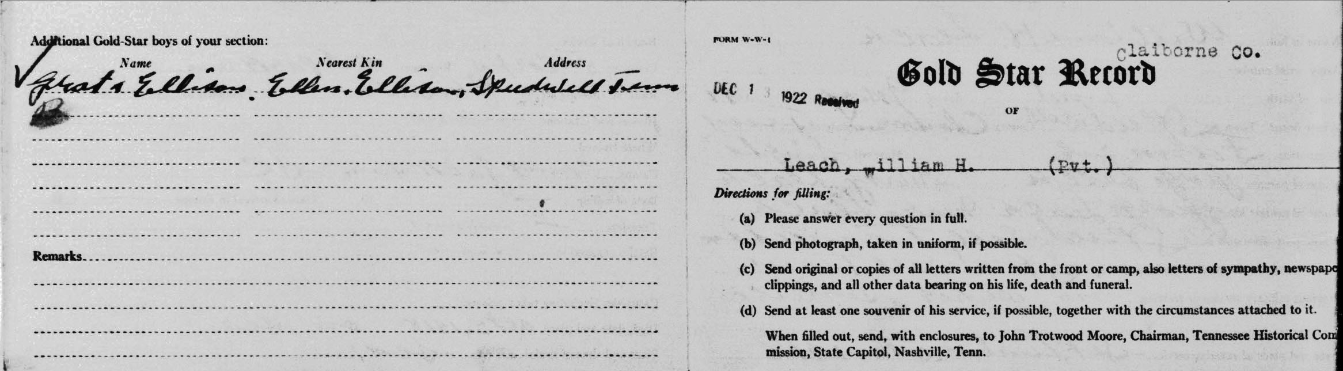 Additional Gold-Star boys of your section:
Name Nearest Kin Address
Ellison, Ellen Ellison, Speedwell Tenn
Remarks
FORM W-W-1
Claiborne Co.
Gold Star Record
DEC 1 1922 Received
OF
Leach, William H. (Pvt.)
Directions for filling:
(a) Please answer every question in full.
(b) Send photograph, taken in uniform, if possible.
(c) Send original or copies of all letters written from the front or camp, also letters of sympathy, newspape
clippings, and all other data bearing on his life, death and funeral.
(d) Send at least one souvenir of his service, if possible, together with the circumstances attached to it.
When filled out, send, with enclosures, to John Trotwood Moore, Chairman, Tennessee Historical Com
mission, State Capitol, Nashville, Tenn.